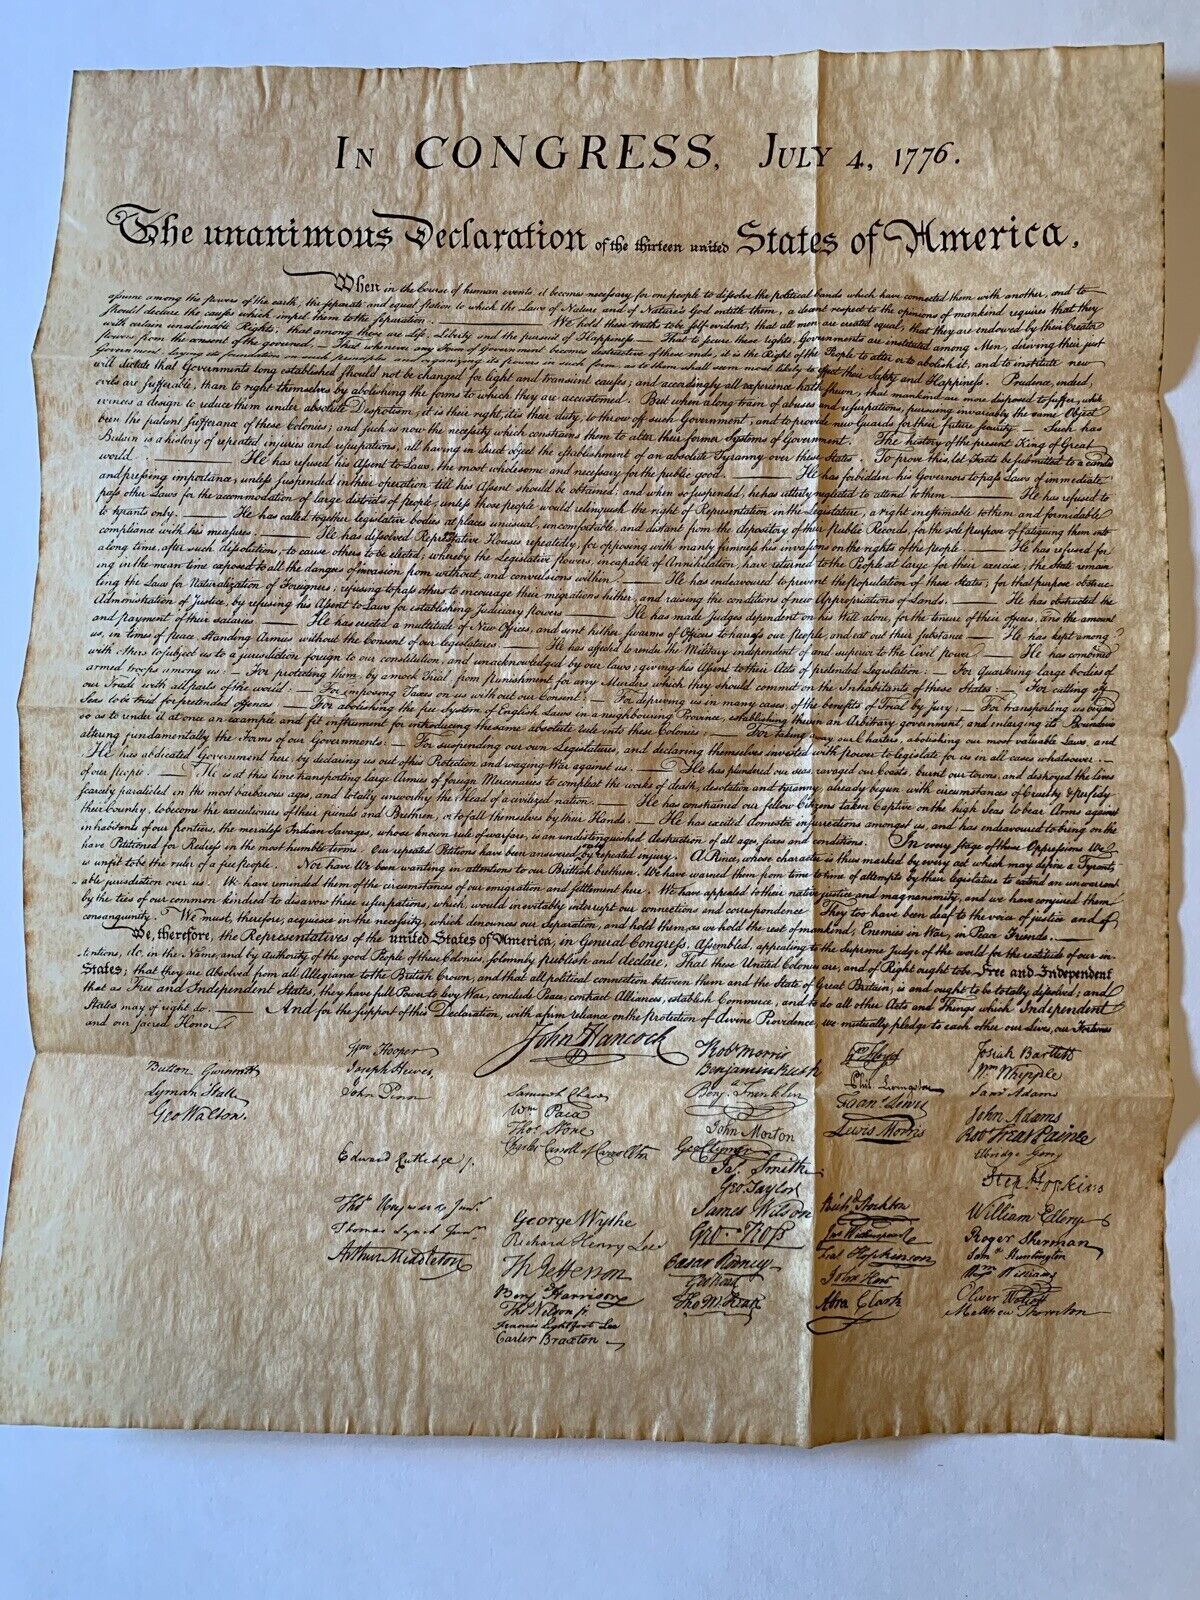 In CONGRESS, July 4, 1776.
The unanimous Declaration of the thirteen united States of America,
When in the Course of human events, it becomes necessary for one people to dissolve the political bands which have connected them with another, and to
assume among the powers of the earth, the separate and equal station to which the Laws of Nature and of Nature's God entitle them, a decent respect to the opinions of mankind requires that they
should declare the causes which impel them to the separation. — We hold these truths to be self-evident, that all men are created equal, that they are endowed by their Creator
with certain unalienable Rights; that among these are Life, Liberty and the pursuit of Happiness — That to secure these rights, Governments are instituted among Men, deriving their just
powers from the consent of the governed, — That whenever any Form of Government becomes destructive of these ends, it is the Right of the People to alter or to abolish it, and to institute new
Government, laying its foundation on such principles and organizing its powers in such form, as to them shall seem most likely to effect their Safety and Happiness. Prudence, indeed,
will dictate that Governments long established should not be changed for light and transient causes; and accordingly all experience hath shewn, that mankind are more disposed to suffer, while
evils are sufferable, than to right themselves by abolishing the forms to which they are accustomed. But when a long train of abuses and usurpations, pursuing invariably the same Object
evinces a design to reduce them under absolute Despotism, it is their right, it is their duty, to throw off such Government, and to provide new Guards for their future security. — Such has
been the patient sufferance of these Colonies; and such is now the necessity which constrains them to alter their former Systems of Government. The history of the present King of Great
Britain is a history of repeated injuries and usurpations, all having in direct object the establishment of an absolute Tyranny over these States. To prove this, let Facts be submitted to a candid
world. — He has refused his Assent to Laws, the most wholesome and necessary for the public good. — He has forbidden his Governors to pass Laws of immediate
and pressing importance, unless suspended in their operation till his Assent should be obtained; and when so suspended, he has utterly neglected to attend to them — He has refused to
pass other Laws for the accommodation of large districts of people, unless those people would relinquish the right of Representation in the Legislature, a right inestimable to them and formidable
to tyrants only. — He has called together legislative bodies at places unusual, uncomfortable, and distant from the depository of their Public Records, for the sole purpose of fatiguing them into
compliance with his measures. — He has dissolved Representative Houses repeatedly, for opposing with manly firmness his invasions on the rights of the people. — He has refused for
a long time, after such dissolutions, to cause others to be elected; whereby the Legislative powers, incapable of Annihilation, have returned to the People at large for their exercise; the State remain
ing in the mean time exposed to all the dangers of invasion from without, and convulsions within — He has endeavoured to prevent the population of these States; for that purpose obstruc-
ting the Laws for Naturalization of Foreigners; refusing to pass others to encourage their migrations hither, and raising the conditions of new Appropriations of Lands. — He has obstructed the
Administration of Justice, by refusing his Assent to Laws for establishing Judiciary powers — He has made Judges dependent on his Will alone, for the tenure of their offices, and the amount
and payment of their salaries — He has erected a multitude of New Offices, and sent hither swarms of Officers to harrass our people, and eat out their substance — He has kept among
us, in times of peace, Standing Armies without the Consent of our legislatures — He has affected to render the Military independent of and superior to the Civil power — He has combined
with others to subject us to a jurisdiction foreign to our constitution, and unacknowledged by our laws; giving his Assent to their Acts of pretended Legislation: — For Quartering large bodies of
armed troops among us: — For protecting them, by a mock Trial, from punishment for any Murders which they should commit on the Inhabitants of these States: — For cutting off
our Trade with all parts of the world: — For imposing Taxes on us without our Consent: — For depriving us in many cases, of the benefits of Trial by Jury: — For transporting us beyond
Seas to be tried for pretended offences: — For abolishing the free System of English Laws in a neighbouring Province, establishing therein an Arbitrary government, and enlarging its Boundaries
so as to render it at once an example and fit instrument for introducing the same absolute rule into these Colonies: — For taking away our Charters, abolishing our most valuable Laws, and
altering fundamentally the Forms of our Governments: — For suspending our own Legislatures, and declaring themselves invested with power to legislate for us in all cases whatsoever. —
He has abdicated Government here, by declaring us out of his Protection and waging War against us. — He has plundered our seas, ravaged our Coasts, burnt our towns, and destroyed the lives
of our people. — He is at this time transporting large Armies of foreign Mercenaries to compleat the works of death, desolation and tyranny, already begun with circumstances of Cruelty & perfidy
scarcely paralleled in the most barbarous ages, and totally unworthy the Head of a civilized nation. — He has constrained our fellow Citizens taken Captive on the high Seas to bear Arms against
their Country, to become the executioners of their friends and Brethren, or to fall themselves by their Hands. — He has excited domestic insurrections amongst us, and has endeavoured to bring on the
inhabitants of our frontiers, the merciless Indian Savages, whose known rule of warfare, is an undistinguished destruction of all ages, sexes and conditions. In every stage of these Oppressions We
have Petitioned for Redress in the most humble terms: Our repeated Petitions have been answered only by repeated injury. A Prince, whose character is thus marked by every act which may define a Tyrant,
is unfit to be the ruler of a free people. Nor have We been wanting in attentions to our Brittish brethren. We have warned them from time to time of attempts by their legislature to extend an unwarrant
able jurisdiction over us. We have reminded them of the circumstances of our emigration and settlement here. We have appealed to their native justice and magnanimity, and we have conjured them
by the ties of our common kindred to disavow these usurpations, which, would inevitably interrupt our connections and correspondence They too have been deaf to the voice of justice and of
consanguinity. We must, therefore, acquiesce in the necessity, which denounces our Separation, and hold them, as we hold the rest of mankind, Enemies in War, in Peace Friends. —
We, therefore, the Representatives of the united States of America, in General Congress, Assembled, appealing to the Supreme Judge of the world for the rectitude of our in-
tentions, do, in the Name, and by authority of the good People of these Colonies, solemnly publish and declare, That these United Colonies are, and of Right ought to be Free and Independent
States; that they are Absolved from all Allegiance to the British Crown, and that all political connection between them and the State of Great Britain, is and ought to be totally dissolved; and
that as Free and Independent States, they have full Power to levy War, conclude Peace, contract Alliances, establish Commerce, and to do all other Acts and Things which Independent
States may of right do. — And for the support of this Declaration, with a firm reliance on the protection of divine Providence, we mutually pledge to each other our Lives, our Fortunes
and our sacred Honor
John Hancock
Button Gwinnett
Lyman Hall
Geo Walton.
Wm Hooper
Joseph Hewes,
John Penn
Edward Rutledge /.
Thos Heyward Junr.
Thomas Lynch Junr.
Arthur Middleton
Samuel Chase
Wm Paca
Thos Stone
Charles Carroll of Carrollton
George Wythe
Richard Henry Lee
Th Jefferson
Benj Harrison
Thos Nelson jr
Francis Lightfoot Lee
Carter Braxton
Robt Morris
Benjamin Rush
Benja Franklin
John Morton
Geo Clymer
Jas Smith
Geo. Taylor
James Wilson
Geo. Ross
Caesar Rodney
Geo Read
Tho M:Kean
Wm Floyd
Phil. Livingston
Frans. Lewis
Lewis Morris
Richd Stockton
Jno Witherspoon
Fras Hopkinson
John Hart
Abra Clark
Josiah Bartlett
Wm Whipple
Saml Adams
John Adams
Robt Treat Paine
Elbridge Gerry
Step Hopkins
William Ellery
Roger Sherman
Saml Huntington
Wm Williams
Oliver Wolcott
Matthew Thornton